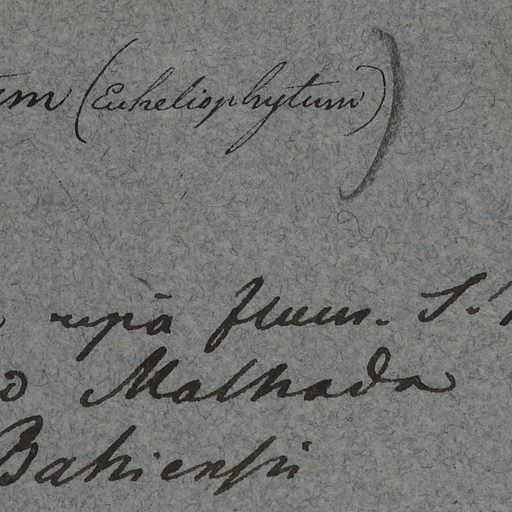 um (Euheliophytum)
ripā fluvi. S.
Malhada
Bahiensi